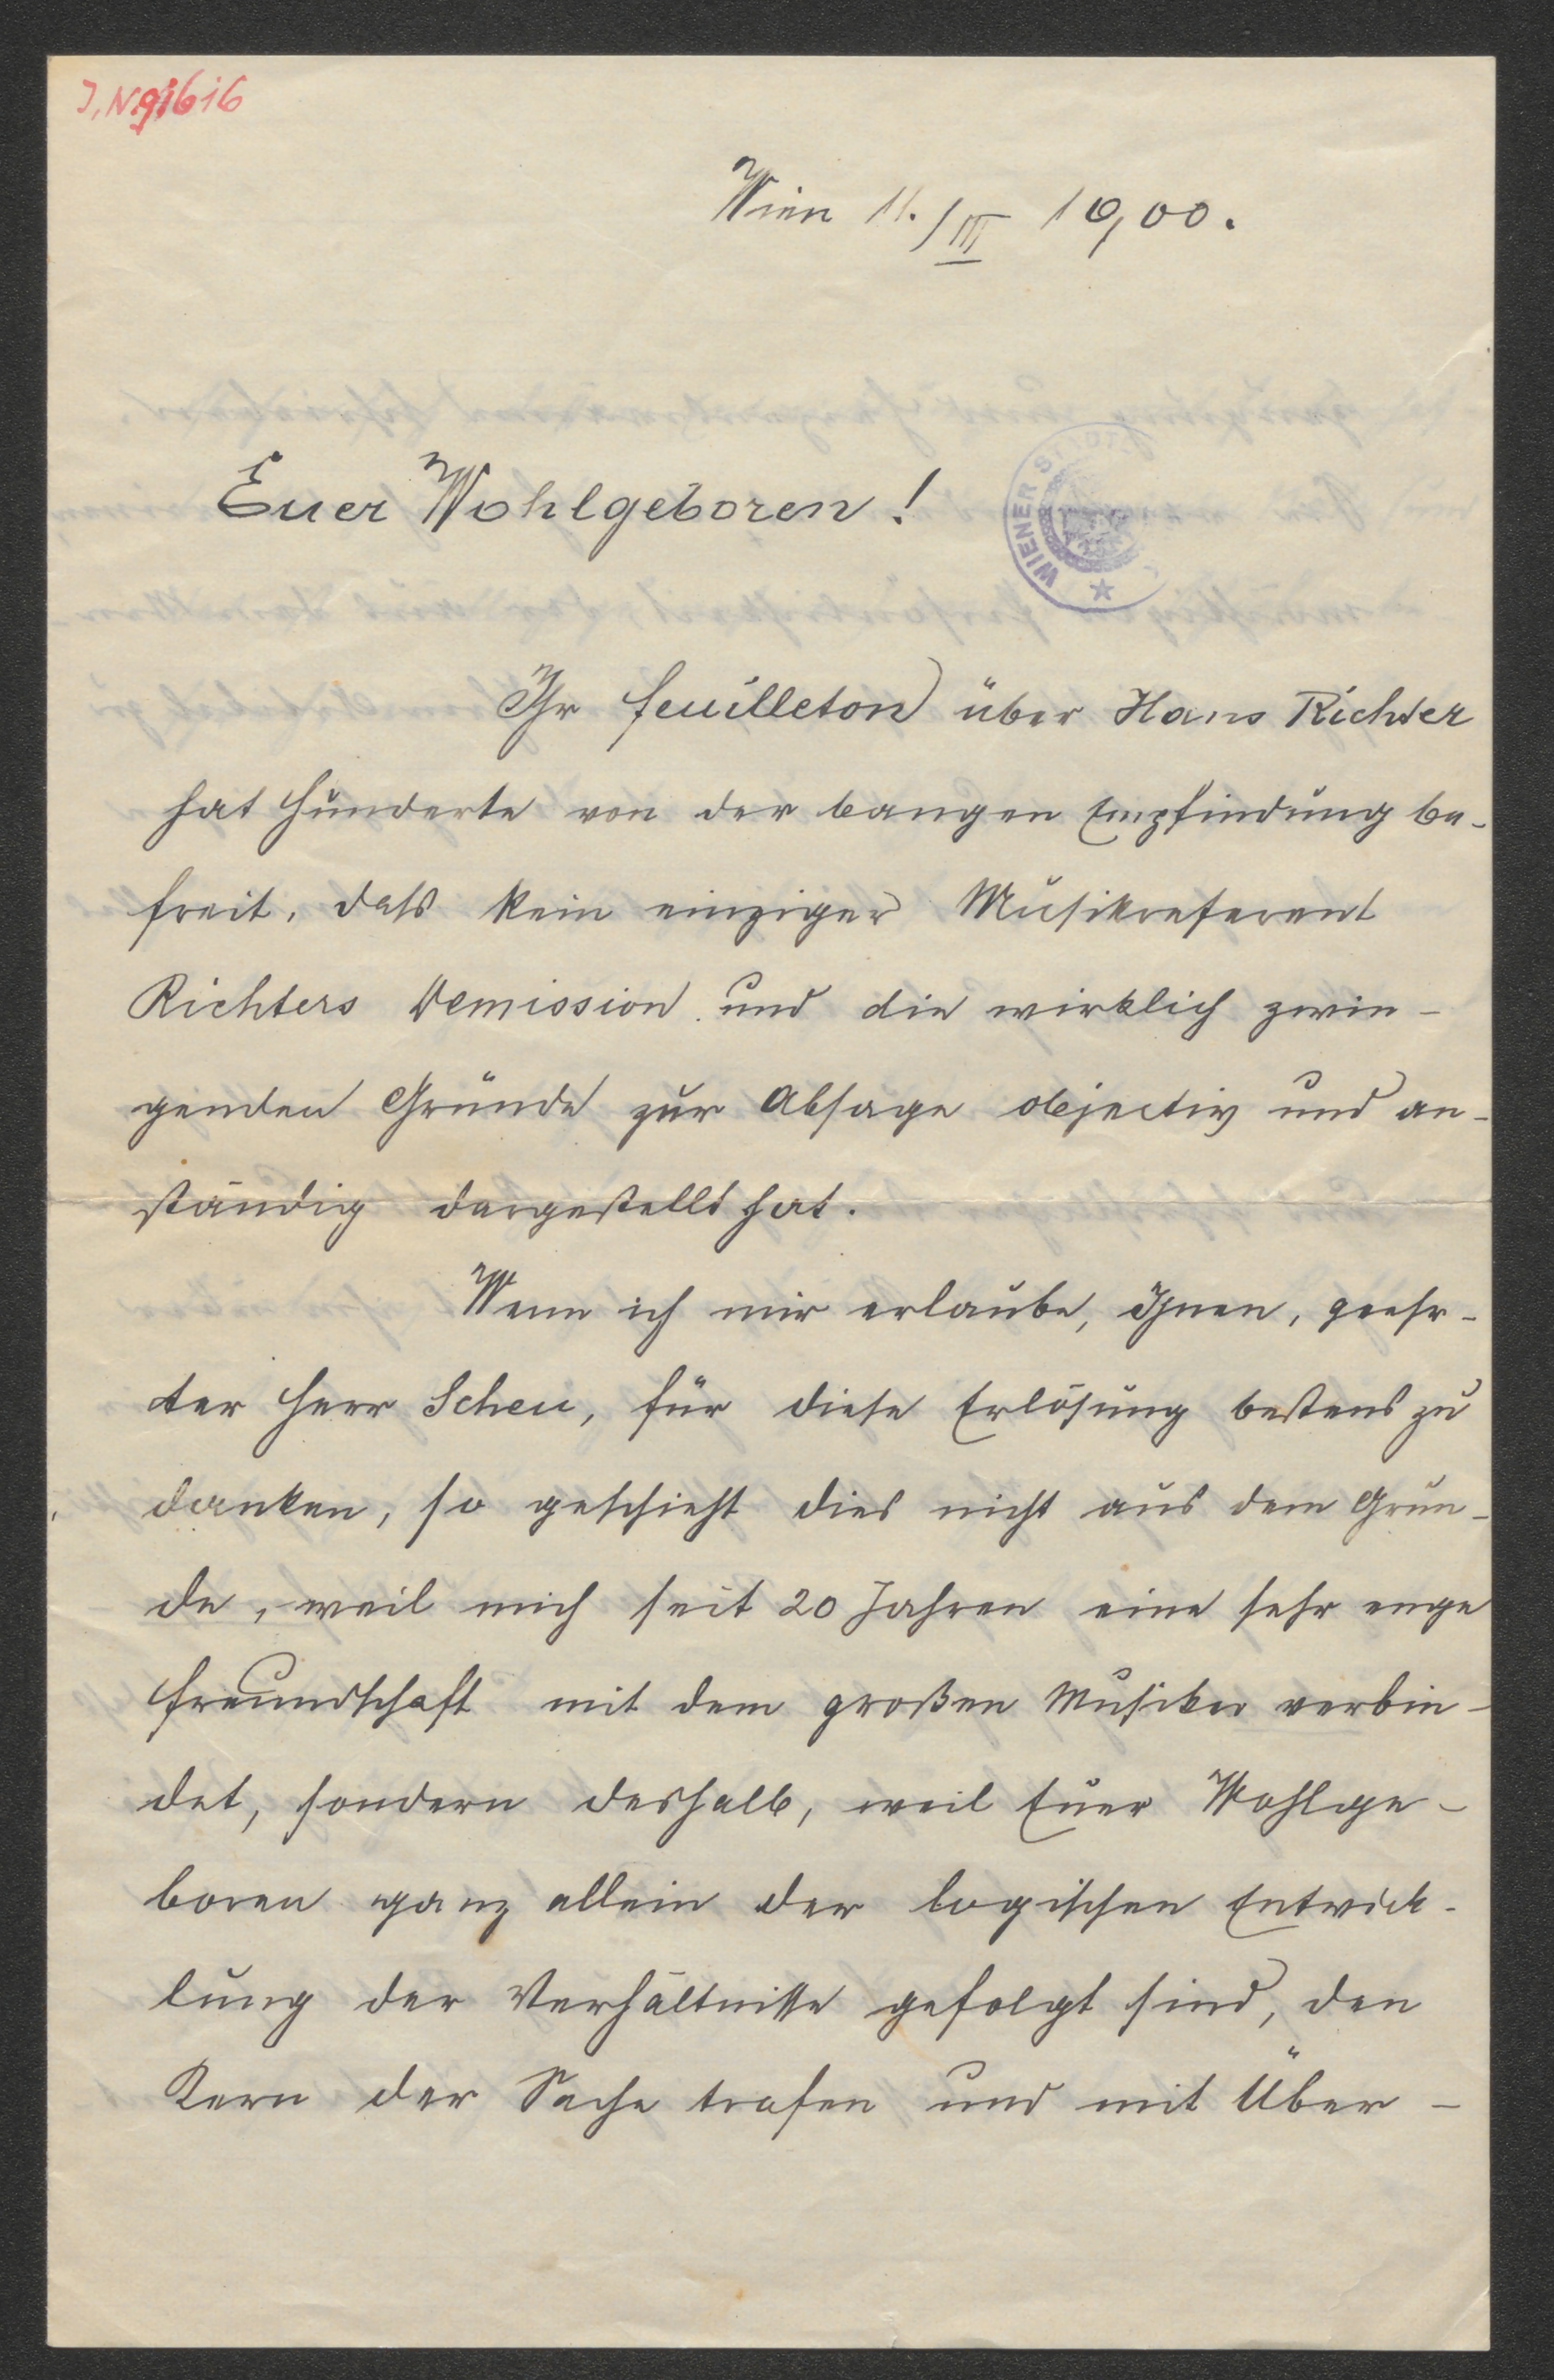 J.N. 91616
Wien 11./III 1900.
Euer Wohlgeboren!
WIENER STADT
Ihr Feuilleton über Hans Richter
hat Hunderte von der bangen Empfindung be-
freit, dass kein einziger Musikreferent
Richters Demission und die wirklich zwin-
genden Gründe zur Absage objectiv und an-
ständig dargestellt hat.
Wenn ich mir erlaube, Ihnen, geehr-
ter Herr Scheu, für diese Erlösung bestens zu
danken, so geschieht dies nicht aus dem Grun-
de, weil mich seit 20 Jahren eine sehr enge
Freundschaft mit dem großen Musiker verbin-
det, sondern deshalb, weil Euer Wohlge-
boren ganz allein der logischen Entwick-
lung der Verhältnisse gefolgt sind, den
Kern der Sache trafen und mit Über-